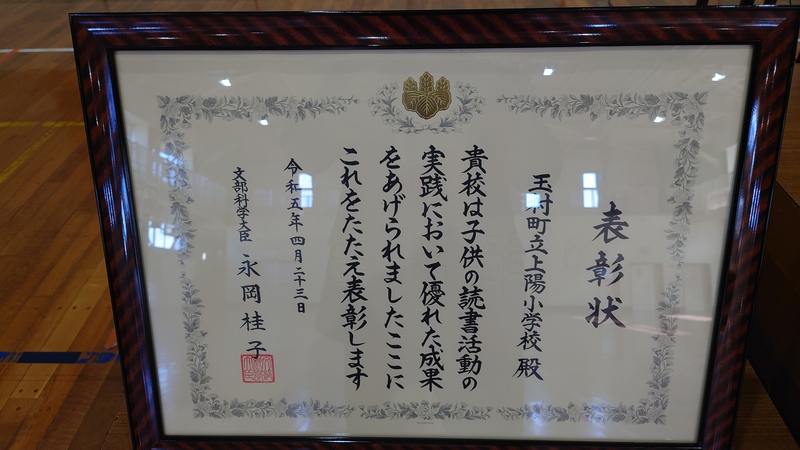 表彰状
玉村町立上陽小学校 殿
貴校は子供の読書活動の
実践において優れた成果
をあげられましたここに
これをたたえ表彰します
令和五年四月二十三日
文部科学大臣 永岡桂子